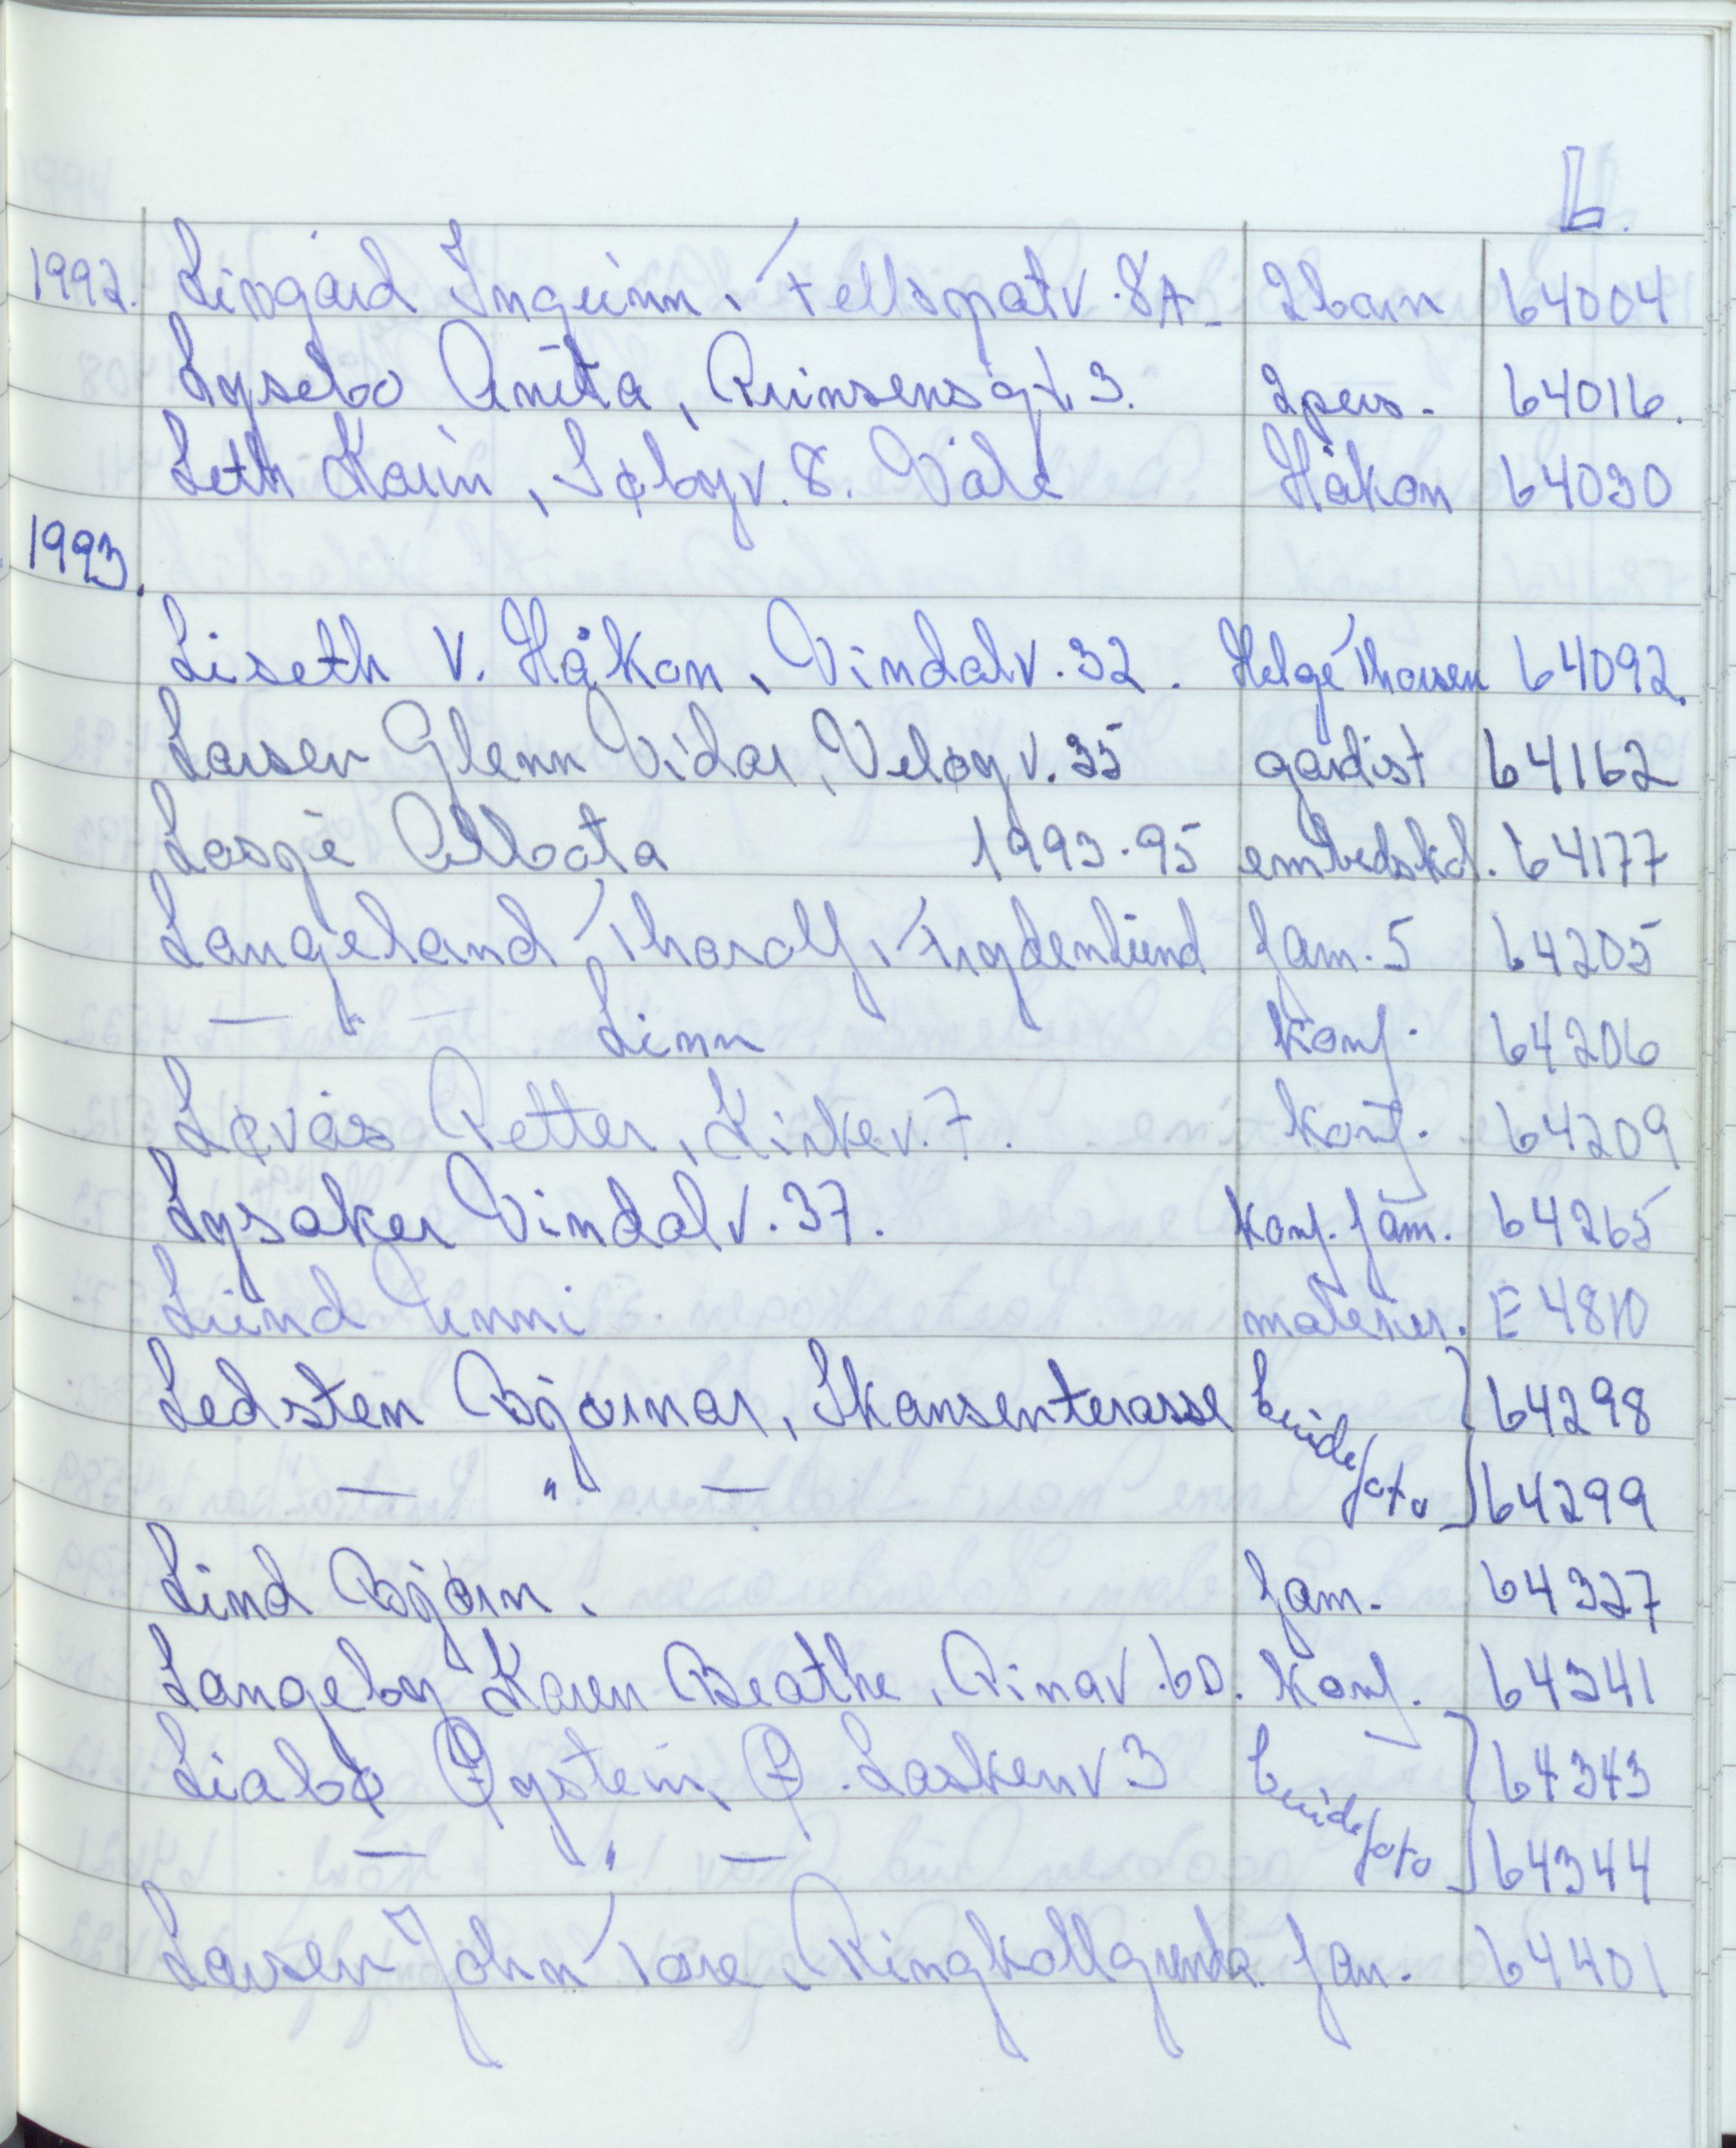 L.
1992. Livgård Ingunn, Feltspatv. 8A - 2 barn 64004
Lysebo Anita, Prinsensgt. 3. 2 pers - 64016.
Leth Karin, Søbyv. 8. Våle Håkon 64030
1993.
Liseth V. Håkon, Vindalv. 32. Helge Thorsen 64092.
Larsen Glenn Vidar, Veløyv. 35 gardist 64162
Losje Albata 1993-95 embedskol. 64177
Langeland Tharolf, Frydenlund fam. 5 64205
— " — Linn konf. 64206
Løvås Petter, Kirkev. 7. konf. 64209
Lysaker Vindalv. 37. konf. fam. 64265
Lund Unni materier. E 4810
Ledsten Bjørnar, Skansenterasse brude 64298
— " — foto 64299
Lind Bjørn. fam. 64327
Langeby Karen Beathe, Rinav. 6D. konf. 64341
Liabø Øystein, Ø. Laskenv 3 brude 64343
— " — foto 64344
Larsen John Tore, Ringkollgrenda. fam. 64401